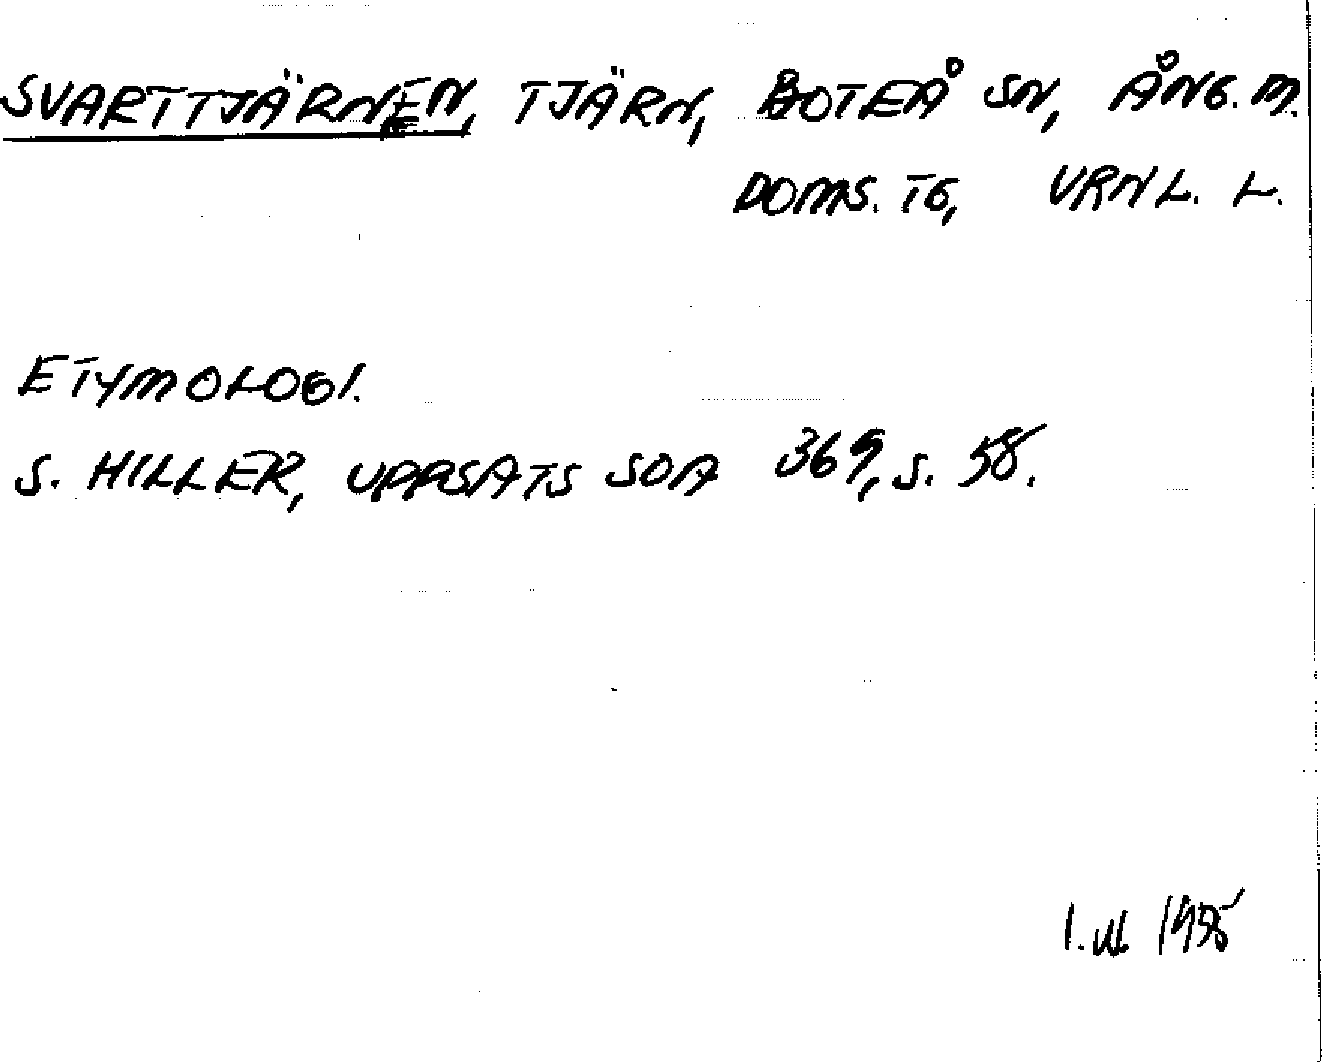 SVARTTJÄRNEN, TJÄRN, BOTEÅ SN, ÅNG. M.
DOMS. TG, VRNL. L.
ETYMOLOGI.
S. HILLER, UPPSATS SOA 369, S. 58.
1955